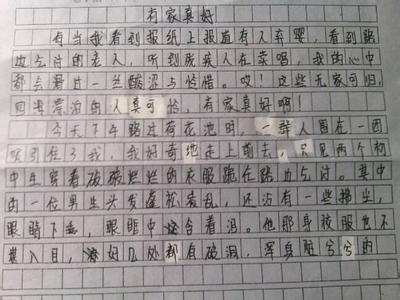 有家真好
有当我看到报纸上报道有人弃婴，看到路
边乞讨的老人，听到残疾人在卖唱，我的心中
都会看过一丝酸涩与怜惜。哎！这些无家可归，
四海漂泊的人真可怜，有家真好啊！
今天下午路过荷花池时，一群人围在一团
吸引住了我，我好奇地走上前去，只见两个初
中生穿着破破烂烂的衣服跪在路边乞讨。其中
的一位男生头发蓬松凌乱，还沾有一些灰尘，
眼睛下垂，眼眶中含着泪。他那身校服也不
堪入目，好几处都有破洞，浑身脏兮兮的